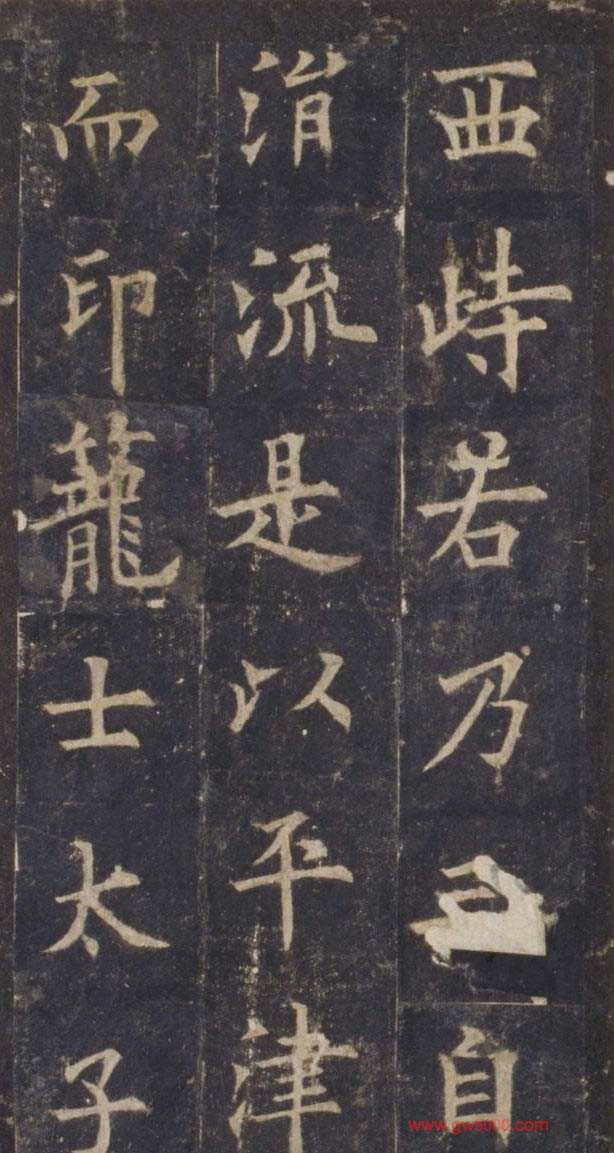 西峙若乃自
涓流是以平津
而印籠士太子
www.gw5000.com